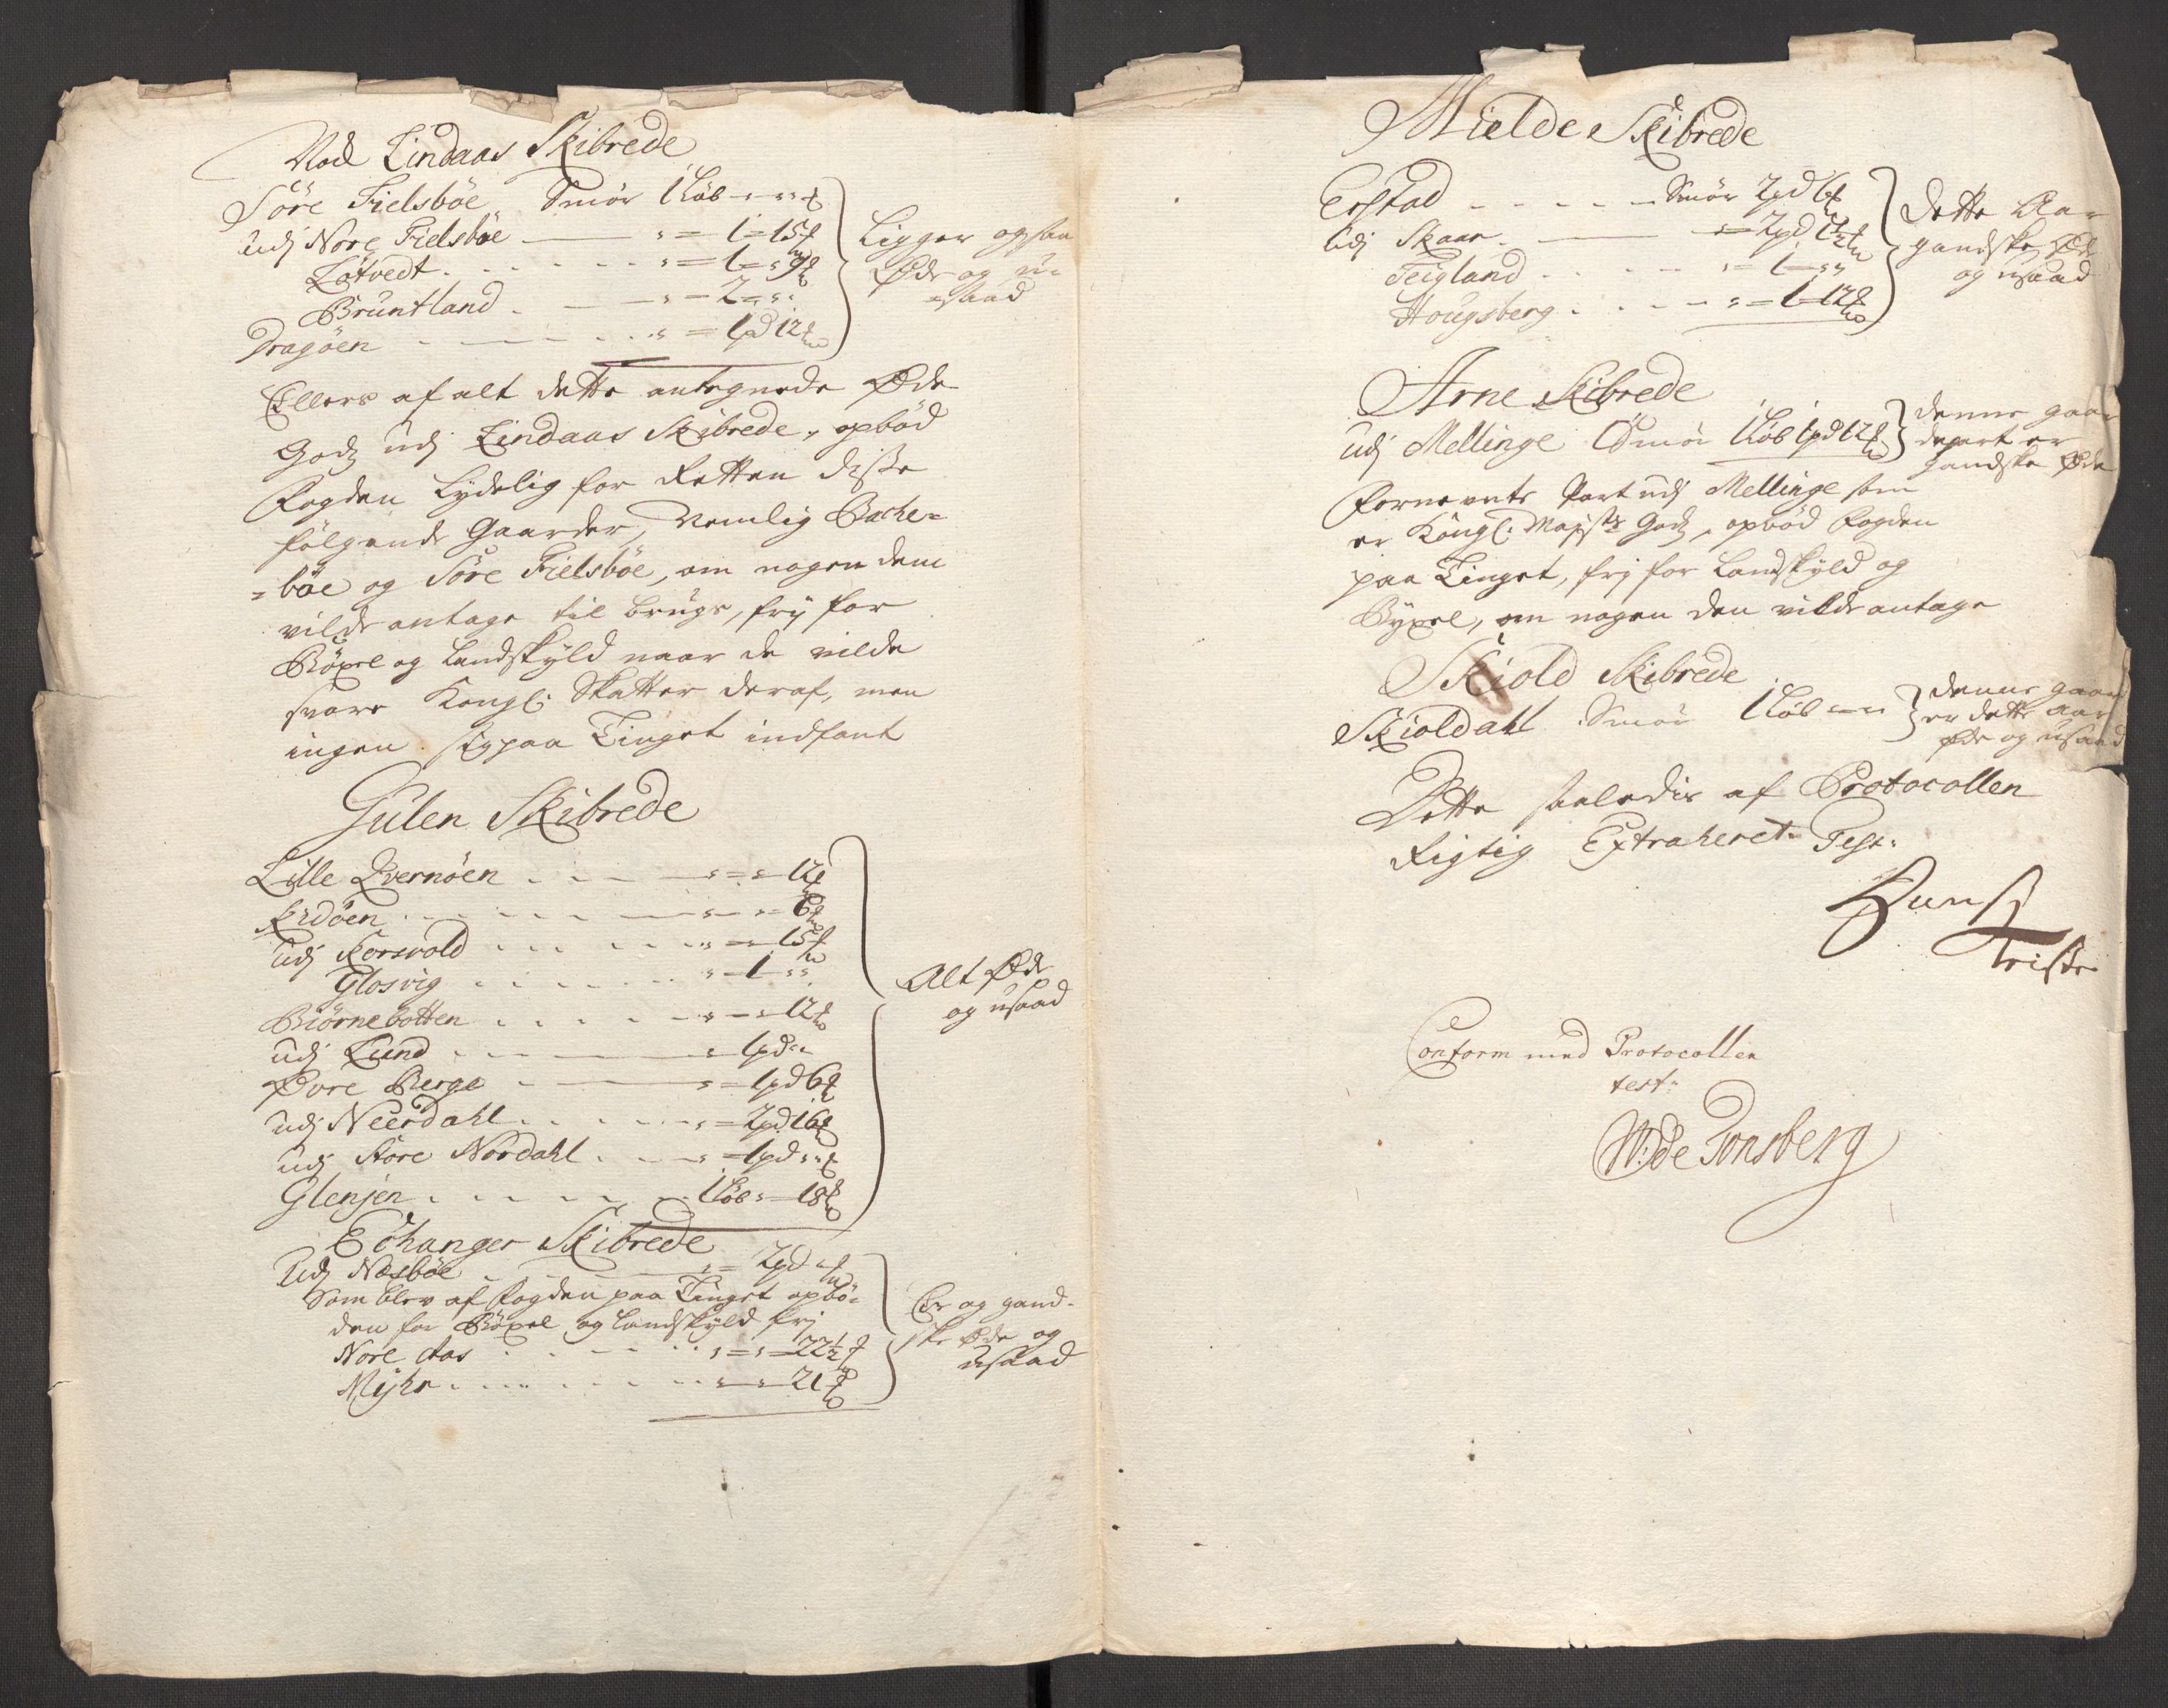 Ved Lindaas Skibrede
Söre Fielsböe Smör 1 Løb - - -
udj Nore Fielsböe - " - 1 - 15
Lötvedt - " - 1 - " 9
Bruntland - " - 2 - " "
Dragöen - " - 1 pd 12
Ligger ogsaa
Øde og u-
saad
Ellers af alt dette antegnede Øde
Godz udj Lindaas Skibrede, opbød
Fogden Lydelig for Retten disse
følgende Gaarder, Nemlig Bache=
=böe og Söre Fielsböe, om nogen dem
vilde antage til brugs, frj for
Böxel og Landskyld naar de vilde
svare Kongl: Skatter deraf, men
ingen sig paa Tinget indfant
Gulen Skibrede
Lille Qvernöen - " - " - 12
Kidöen - " - " - 6
udj Korsvold - " - " - 15
Glosvig - " - 1 - " "
Biörnebotten - " - " - 12
udj Lund - " - 1 pd "
Övre Berge - " - 1 pd 6
udj Neerdahl - " - 2 pd 16
udj Store Nordahl - " - 1 pd "
Glenjen - 1 Løb " - 18
Alt Øde
og usaad
Echanger Skibrede
Udj Næsböe - " - 2 pd -
Som blev af Fogden paa Tinget opbö-
den for Böxel og Landskyld frj
Nore Aas - " - " - 22 1/2
Myhr - " - " - 21
Er og gand-
ske øde og
usaad
Mielde Skibrede
Erstad - Smör 2 pd 6
udj Skaar - " - 2 pd
Teigland - " - 1 - " "
Hougsberg - " - 1 - 12
Dette Aar
gandske Øde
og usaad
Arne Skibrede
udj Mellinge Smör 1 Løb 1 pd 12
denne gaar
depart er
gandske Øde
Fornevnte Part udj Mellinge som
er Kongl: Mayst: Godz, opbød Fogden
paa Tinget, frj for Landskyld og
Byxel, om nogen den vilde antage
Skiold Skibrede
Skioldahl Smör 1 Løb - -
denne gaar
er dette Aar
øde og usaad
Dette saaledis af Protocollen
Rigtig Extraheret Test:
Conform med Protocollen
test:
W: de Tonsberg